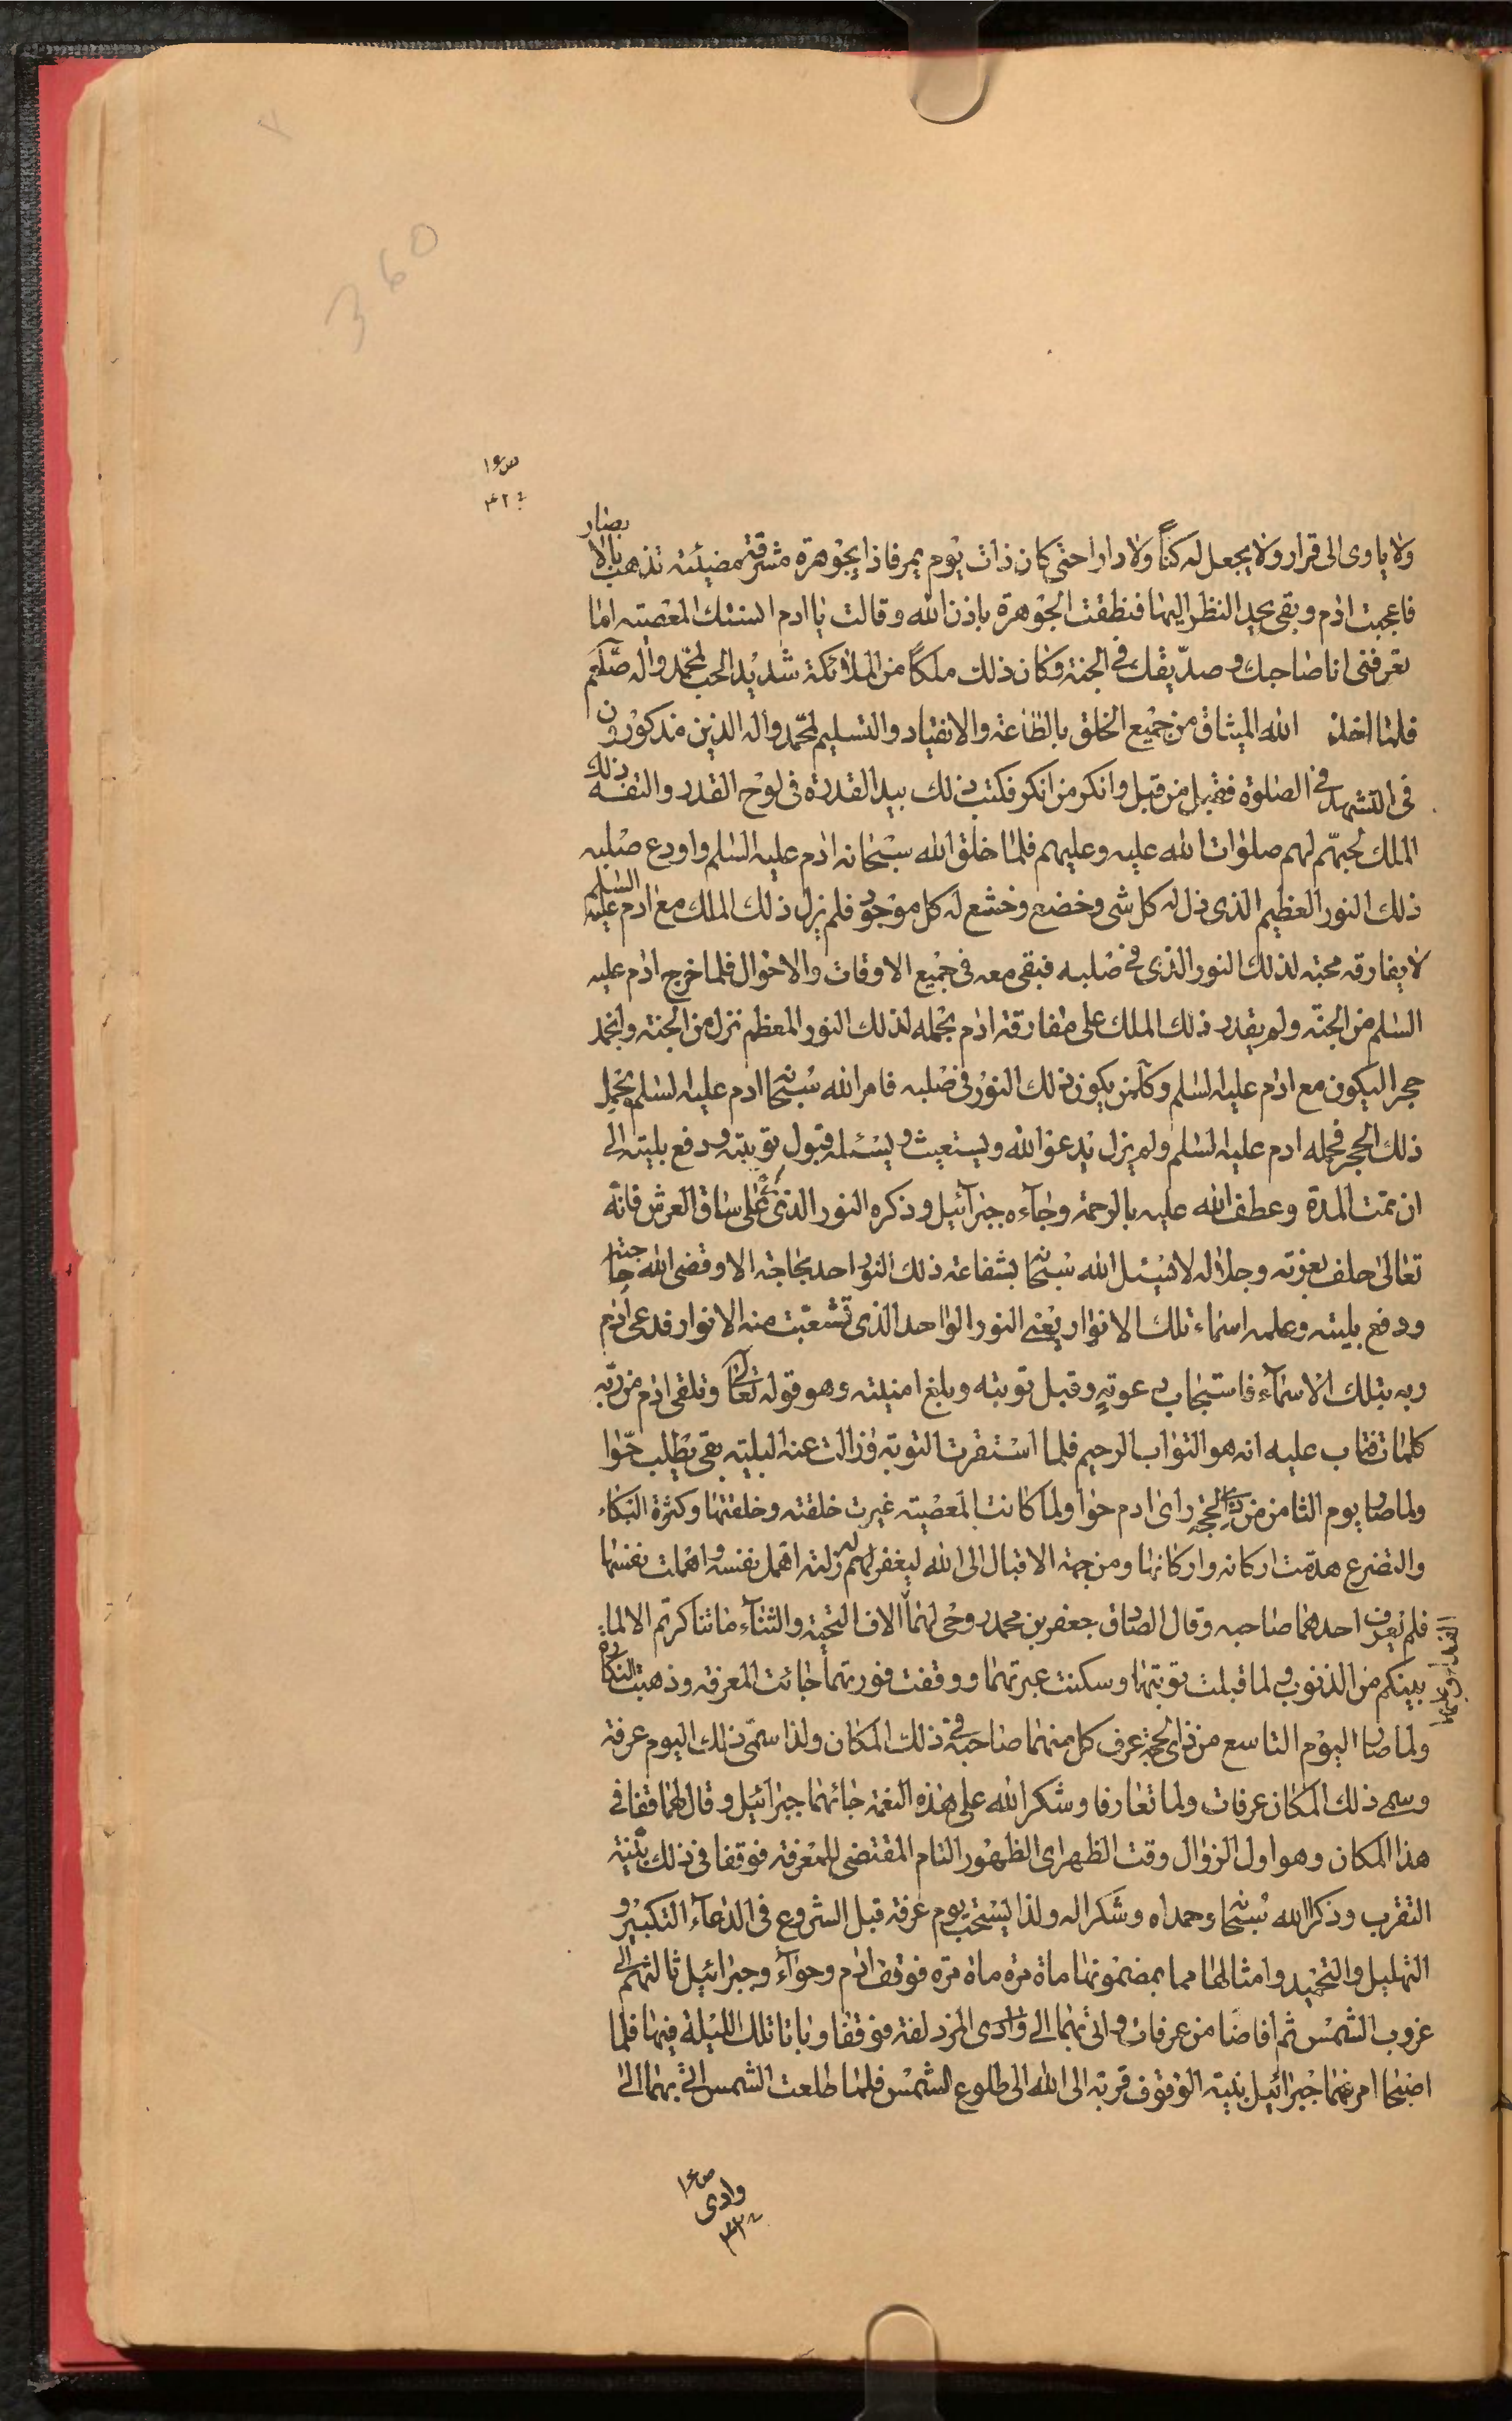 360
ص١٦
٣٢
ولا ياوى الى قرار ولا يجعل له كنّاً ولا دارا حتى كان ذات يوم يمر فاذا بجوهرة مشرقة مضيئة تذهب بالابصار
فاعجبت ادم وبقى يحيد النظر اليها فنطقت الجوهرة باذن الله وقالت يا ادم انستك المعصية اما
تعرفنى انا صاحبك وصديقك فى الجنة وكان ذلك ملكاً من الملائكة شديد الحب لمحمد واله صلعم
فلما اخذ الله الميثاق من جميع الخلق بالطاعة والانقياد والتسليم لمحمد واله الذين مذكورون
فى التشهد فى الصلوة فقبل من قبل وانكر من انكر فكتب ذلك بيد القدرة فى لوح القدر والتقمه ذلك
الملك لحبهم لهم صلوات الله عليه وعليهم فلما خلق الله سبحانه ادم عليه السلم واودع صلبه
ذلك النور العظيم الذى ذل له كل شى وخضع وخشع له كل موجود فلم يزل ذلك الملك مع ادم عليه السلم
لا يفارقه محبة لذلك النور الذى فى صلبه فبقى معه فى جميع الاوقات والاحوال فلما خرج ادم عليه
السلم من الجنة ولم يقدر ذلك الملك على مفارقة ادم بحمله لذلك النور المعظم نزل من الجنة وانجمد
حجر اليكون مع ادم عليه السلم وكل من يكون ذلك النور فى صلبه فامر الله سبحانه ادم عليه السلم بحمل
ذلك الحجر فحمله ادم عليه السلم ولم يزل يدعو الله ويستغيث ويسئله قبول توبته ودفع بليته الى
ان تمت المدة وعطف الله عليه بالرحمة وجآءه جبرآئيل وذكره النور الذى على ساق العرش فانه
تعالى حلف بعزته وجلاله لا يسئل الله سبحانه بشفاعة ذلك النور احد بحاجة الا وقضى الله حاجته
ودفع بليته وعلمه اسماء تلك الانوار يعنى النور الواحد الذى تشعبت منه الانوار فدعى ادم
ربه بتلك الاسمآء فاستجاب دعوته وقبل توبته وبلغ امنيته وهو قوله تعالى وتلقى ادم من ربه
كلمات فتاب عليه انه هو التواب الرحيم فلما استقرت التوبة وزالت عنه البلية بقى يطلب حوا
ولما صار يوم الثامن من ذى الحجة راى ادم حوا ولما كانت المعصية غيرت خلقته وخلقتها وكثرة البكاء
والتضرع هدمت اركانه واركانها ومن جهة الاقبال الى الله ليغفر لهم زلته اهمل نفسه واهملت نفسها
فلم يعرف احدهما صاحبه وقال الصادق جعفر بن محمد روحى لهما الاف التحية والثناء ما تناكرتم الا لما
بينكم من الذنوب ولما قبلت توبتها وسكنت عبرتهما ووقفت فورتهما جائت المعرفة وذهبت النكارة
ولما صار اليوم التاسع من ذى الحجة عرف كل منهما صاحبه فى ذلك المكان ولذا سمى ذلك اليوم عرفة
وسمى ذلك المكان عرفات ولما تعارفا وشكر الله على هذه النعمة جائهما جبرائيل وقال لهما قفا فى
هذا المكان وهو اول الزوال وقت الظهر اى الظهور التام المقتضى للمعرفة فوقفا فى ذلك بنية
التقرب وذكرا الله سبحانه وحمداه وشكرا له ولذا يستحب يوم عرفة قبل الشروع فى الدعآء التكبير و
التهليل والتحميد وامثالها مما بمضمونها ماة مرة ماة مرة فوقف ادم وحوآء وجبرائيل ثالثهم الى
غروب الشمس ثم افاضا من عرفات واتى بهما الى وادى المزدلفة فوقفا وباتا تلك الليلة فيها فلما
اصبحا امرهما جبرائيل بنية الوقوف قربة الى الله الى طلوع الشمس فلما طلعت الشمس اتى بهما الى
ص١٦
وادى
٣٣